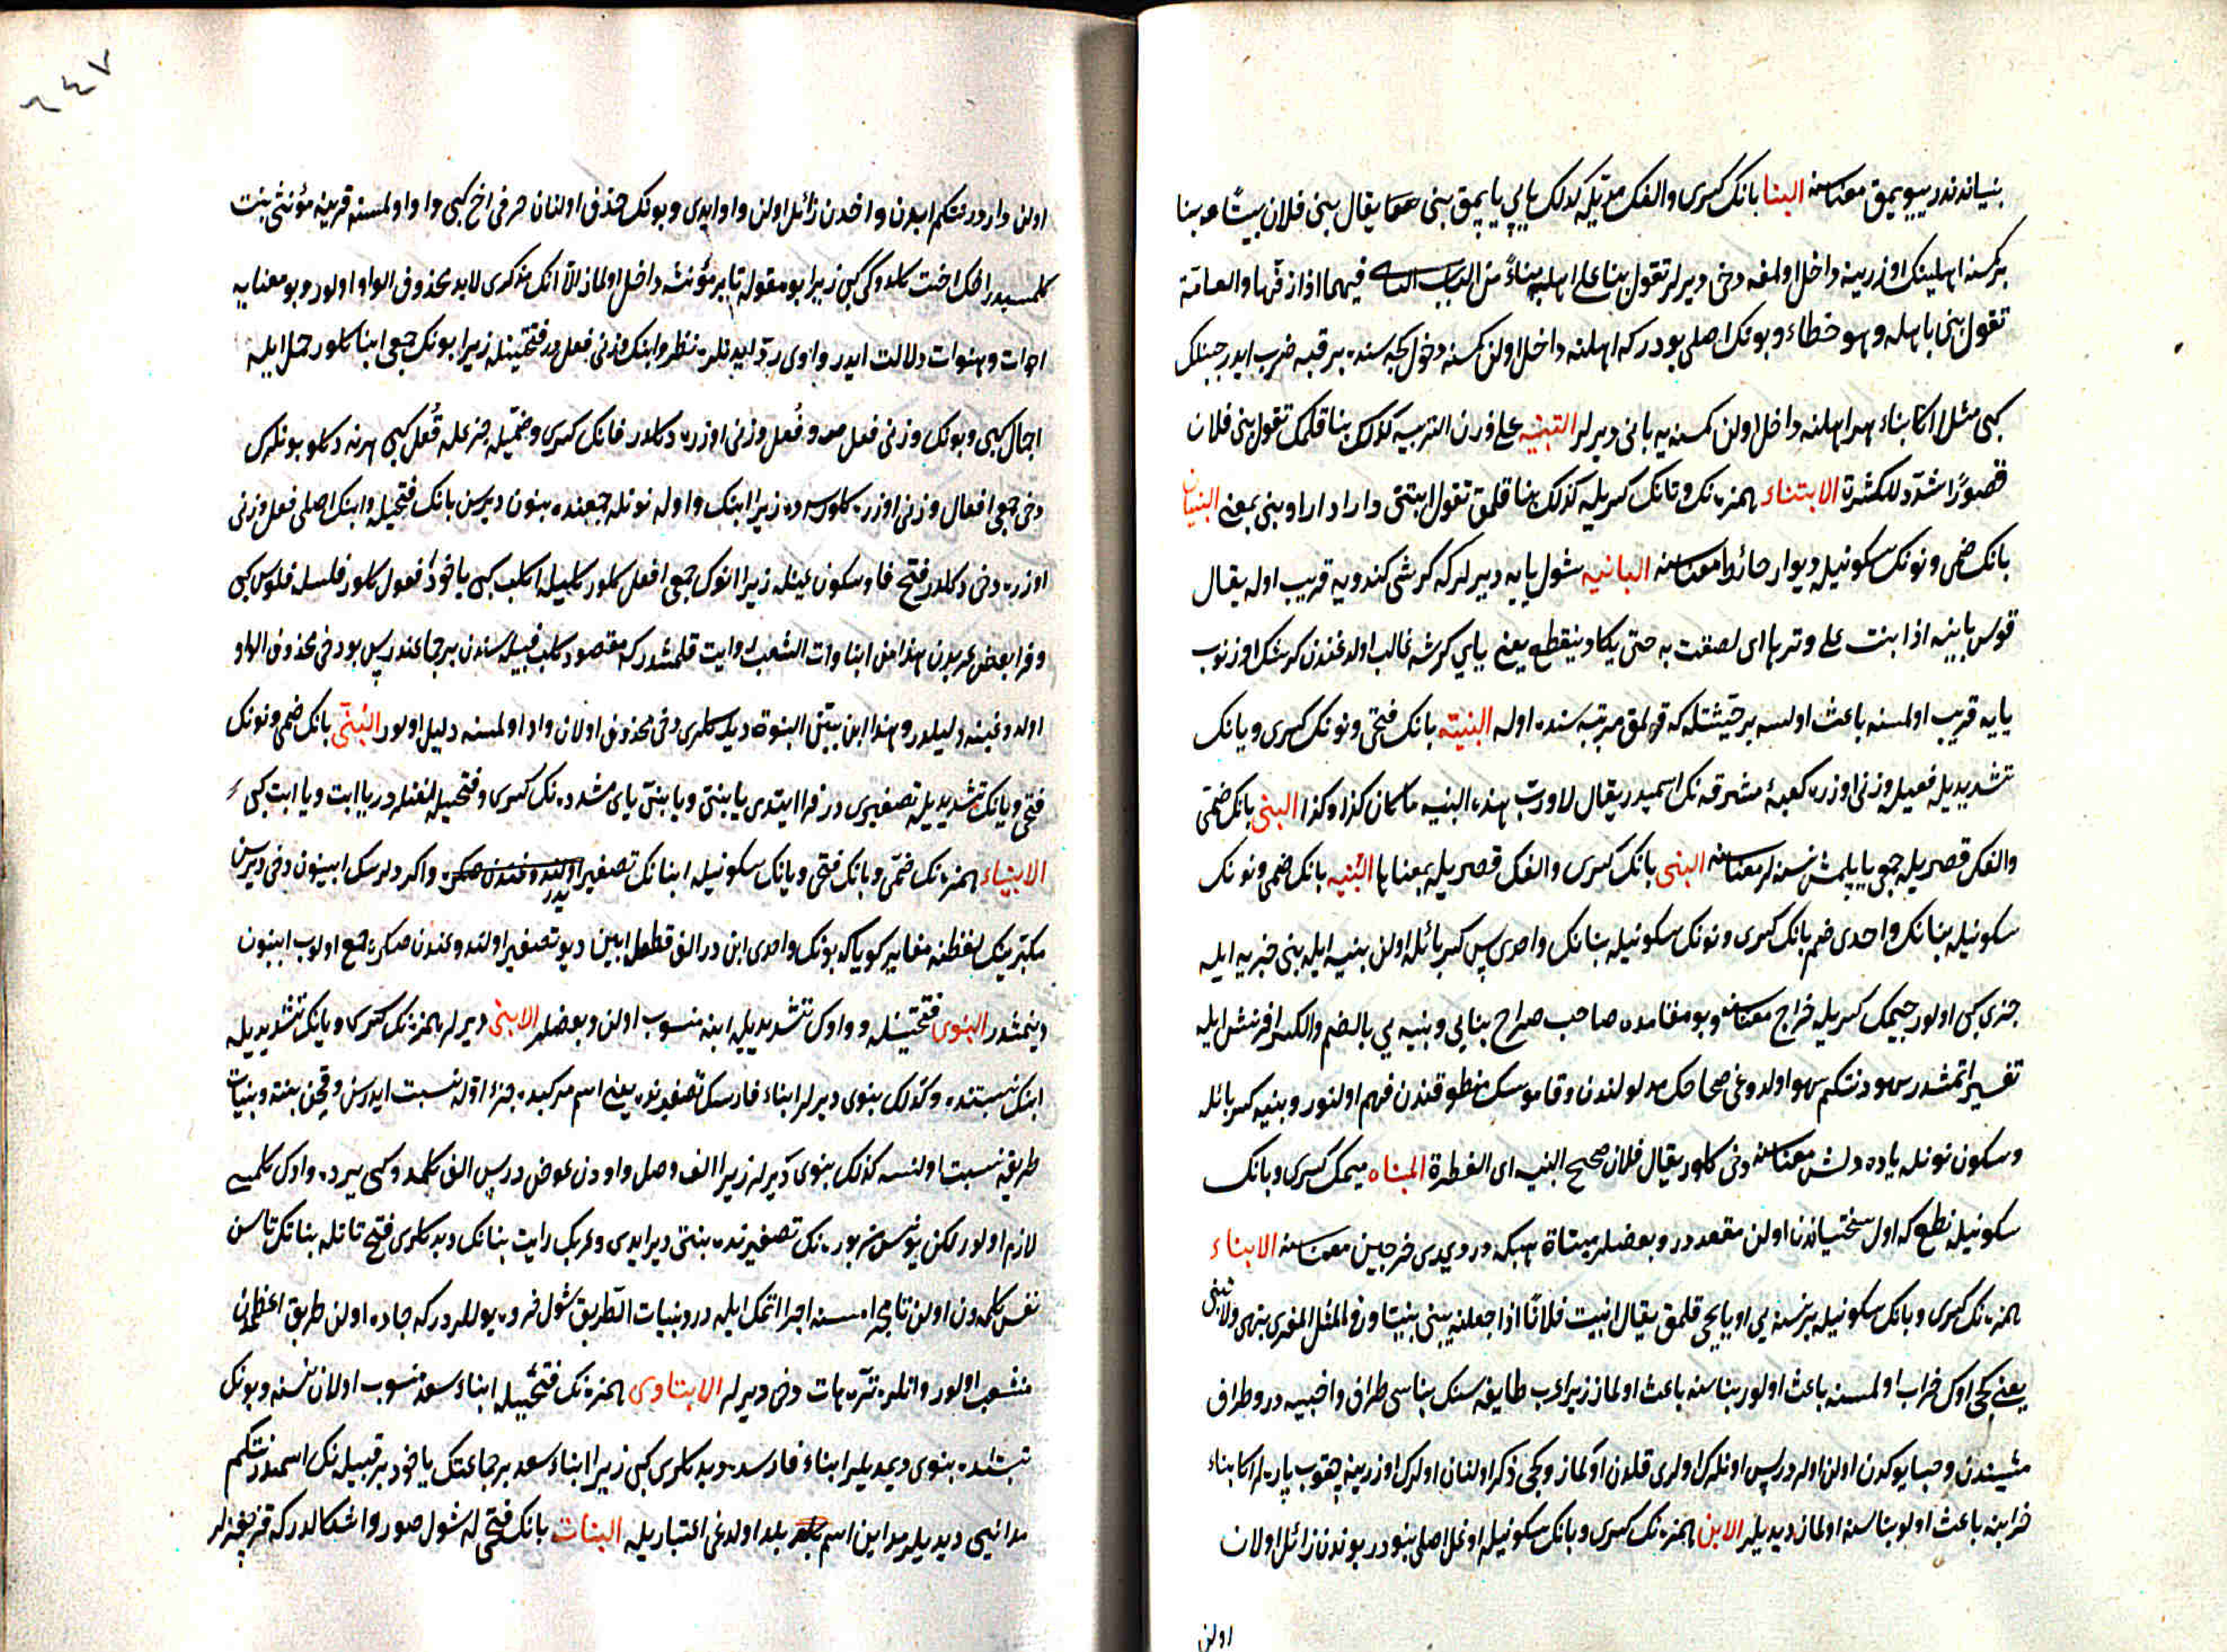 بنیاندندر بیویمق معناسنه البنا بانك كسری والفك مدیله كذلك یاپی یاپمق بنی یقال بنی فلان بیتًا بنا
بر كمسنه اهلینك اوزرینه داخل اولمغه دخی دیرلر تقول بنا علی اهله بناءً من الباب فیهما اذا زفها والعامة
تقول بنی باهله وهو خطاء وبونك اصلی بودر كه اهلنه داخل اولن كمسنه دخول كیجه سنده بر قبه ضرب ایدر
كبی مثلا اكا بناء هر اهلنه داخل اولن كمسنه یه بانی دیرلر التبنیه علی وزن التربیه كذلك بنا قلمك تقول بنی فلان
قصورًا شدّد للكثرة الابتناء همزه نك وتانك كسریله كذلك بنا قلمق تقول ابتنی دارا وبنی بمعنی البنیان
بانك ضمی ونونك سكونیله دیوار حائط معناسنه البانیه شول یایه دیرلر كه كرشی كندویه قریب اوله یقال
قوس بانیه اذا بنت علی وترها ای لصقت به حتی یكاد ینقطع یعنی یای كرشه غالب اولدغندن
یایه قریب اولمسنه باعث اولسه بر حیثیتله كه قوپمق مرتبه سنده اوله البنیّه بانك فتحی ونونك كسری ویانك
تشدیدیله فعیله وزنی اوزره كعبۀ مشرفه نك اسمیدر یقال لا ورب هذه البنیه ما كان كذا وكذا البنی بانك ضمی
والفك قصریله جمعی یاپلمش نسنه لر معناسنه البنی بانك كسری والفك قصریله بمعناها البنیه بانك ضمی ونونك
سكونیله بنانك واحدی ضم بانك كسری ونونك سكونیله بنانك واحدی پس كسر بائله اولن بنیه ایله بنی جزیه ایله
جزی كبی اولور جیمك كسریله خراج معناسنه وبو مقامده صاحب صراح بنایی وبنیه یی بالضم والكسر افرنش ایله
تفسیر اتمشدر سهودر نتكم سهو اولدوغی صحاحك مدلولندن وقاموسك منطوقندن فهم اولنور وبنیه كسر بائله
وسكون نونله یاده دلش معناسنه دخی كلور یقال فلان صحیح البنیه ای الفطرة المبناه میمك كسری وبانك
سكونیله نطع كه اول سختیاندن اولن مقعددر وبعضلر مبناة هبكه در دیدی خرجین معناسنه الابناء
همزه نك كسری وبانك سكونیله بر نسنه یی او یاپیجی قلمق یقال ابنیت فلانًا اذا جعلته یبنی بیتا وفی المثل المعزی تبهی ولا تبنی
یعنی كچی اوك خراب اولمسنه باعث اولور بناسنه باعث اولماز زیرا عرب طایفه سنك بناسی طراف واخبیه در وطراف
مشیندن وخبا یوكدن اولن اولر در پس اونلرك اولری قلدن اولماز وكچی ذكر اولنان اولرك اوزرینه چقوب پاره لر اكا بناء
خرابنه باعث اولوب بناسنه اولماز دیدیلر الابن همزه نك كسری وبانك سكونیله اوغل اصلی بنودر بوندن زائل اولان
اولن
٦٤٧
اولن واودر نتكم ابدن واخدن زائل اولن واو ایدی وبونك حذف اولنان حرفی اخ كبی واو اولمسنه قرینه مؤنثی بنت
كلمسیدر اخك اخت كلدوكی كبی زیرا بو مقوله تا بر مؤنثه داخل اولماز الا انك مذكری لابد محذوف الواو اولور وبو معنایه
اخوات وهنوات دلالت ایدر واوی رد ایدیلر نظر وابنك وزنی فعلدر فتحتینله زیرا بونك جمعی ابنا كلور جمل ایله
اجمال كبی وبونك وزنی فعل وفُعل وزنی اوزره دكلدر فانك كسری وضمیله جزعله قُفل كبی هرنه دكلو بونلرك
دخی جمعی افعال وزنی اوزره كلورسه ده زیرا ابنك واوله نونله جمعنده بنون دیرسن بانك فتحیله وابنك اصلی فعل وزنی
اوزره دخی دكلدر فتح فا وسكون عینله زیرا انوك جمعی افعل كلور كلبیله اكلب كبی یاخود فعول كلور فلسله فلوس كبی
وفرا بعض عربدن هذا من ابناوات الشعب روایت قلمشدر كه مقصود كلب قبیله سندن بر جماعتدر پس بو دخی محذوف الواو
اولدوغینه دلیلدر وهذا ابن بین البنوة دیدكلری دخی محذوف اولان واو اولمسنه دلیل اولور البُنَیّ بانك ضمی ونونك
فتحی ویانك تشدیدیله تصغیری در فرا ایتدی یا بنیّ ویا بنیّ یای مشدده نك كسری وفتحیله لغتلدر یا ابت ویا ابت كبی
الابیناء همزه نك ضمی وبانك فتحی ویانك سكونیله ابنانك تصغیریدر واكر دلرسك ابینون دخی دیرسن
مكبرینك لفظنه مغایر كویا كه بونك واحدی ابن در الف قطعله ابین دیو تصغیر اولندوغندن صكره جمع اولوب ابینون
دینمشدر البنوی فتحتینله وواوك تشدیدیله ابنه منسوب اولن وبعضلر الابنی دیرلر همزه نك كسری ویانك تشدیدیله
ابنك نسبتنده وكذلك بنوی دیرلر ابناء فارسك تصغیرنده یعنی اسم مركبده جزء اوله نسبت ایدرسن وقچن بنته وبنیات
طریقه نسبت اولنسه كذلك بنوی دیرلر زیرا الف وصل واودن عوض در پس الف كلمدوكی یرده واوك كلمسی
لازم اولور لكن یونس مزبوره نك تصغیرنده بنتی دیر ایدی وعربك رایت بناتك دیدكلری فتح تا ایله بناتك تاسن
نفس كلمه دن اولن تا مجراسنه اجرا اتمك ایله در وبنیات الطریق شول خرده یوللردر كه جاده اولن طریق اعظمدن
منشعب اولور وانلره ترهات دخی دیرلر الابناوی همزه نك فتحیله ابناء سعده منسوب اولان نسنه وبونك
نسبتنده بنوی دیمدیلر ابناء فارسده دیدكلری كبی زیرا ابناء سعد بر جماعتك یاخود بر قبیله نك اسمیدر نتكم
مداینی دیدیلر مداین اسم بلد اولدغی اعتباریله البنات بانك فتحی له شول صور واشكالدر كه قز